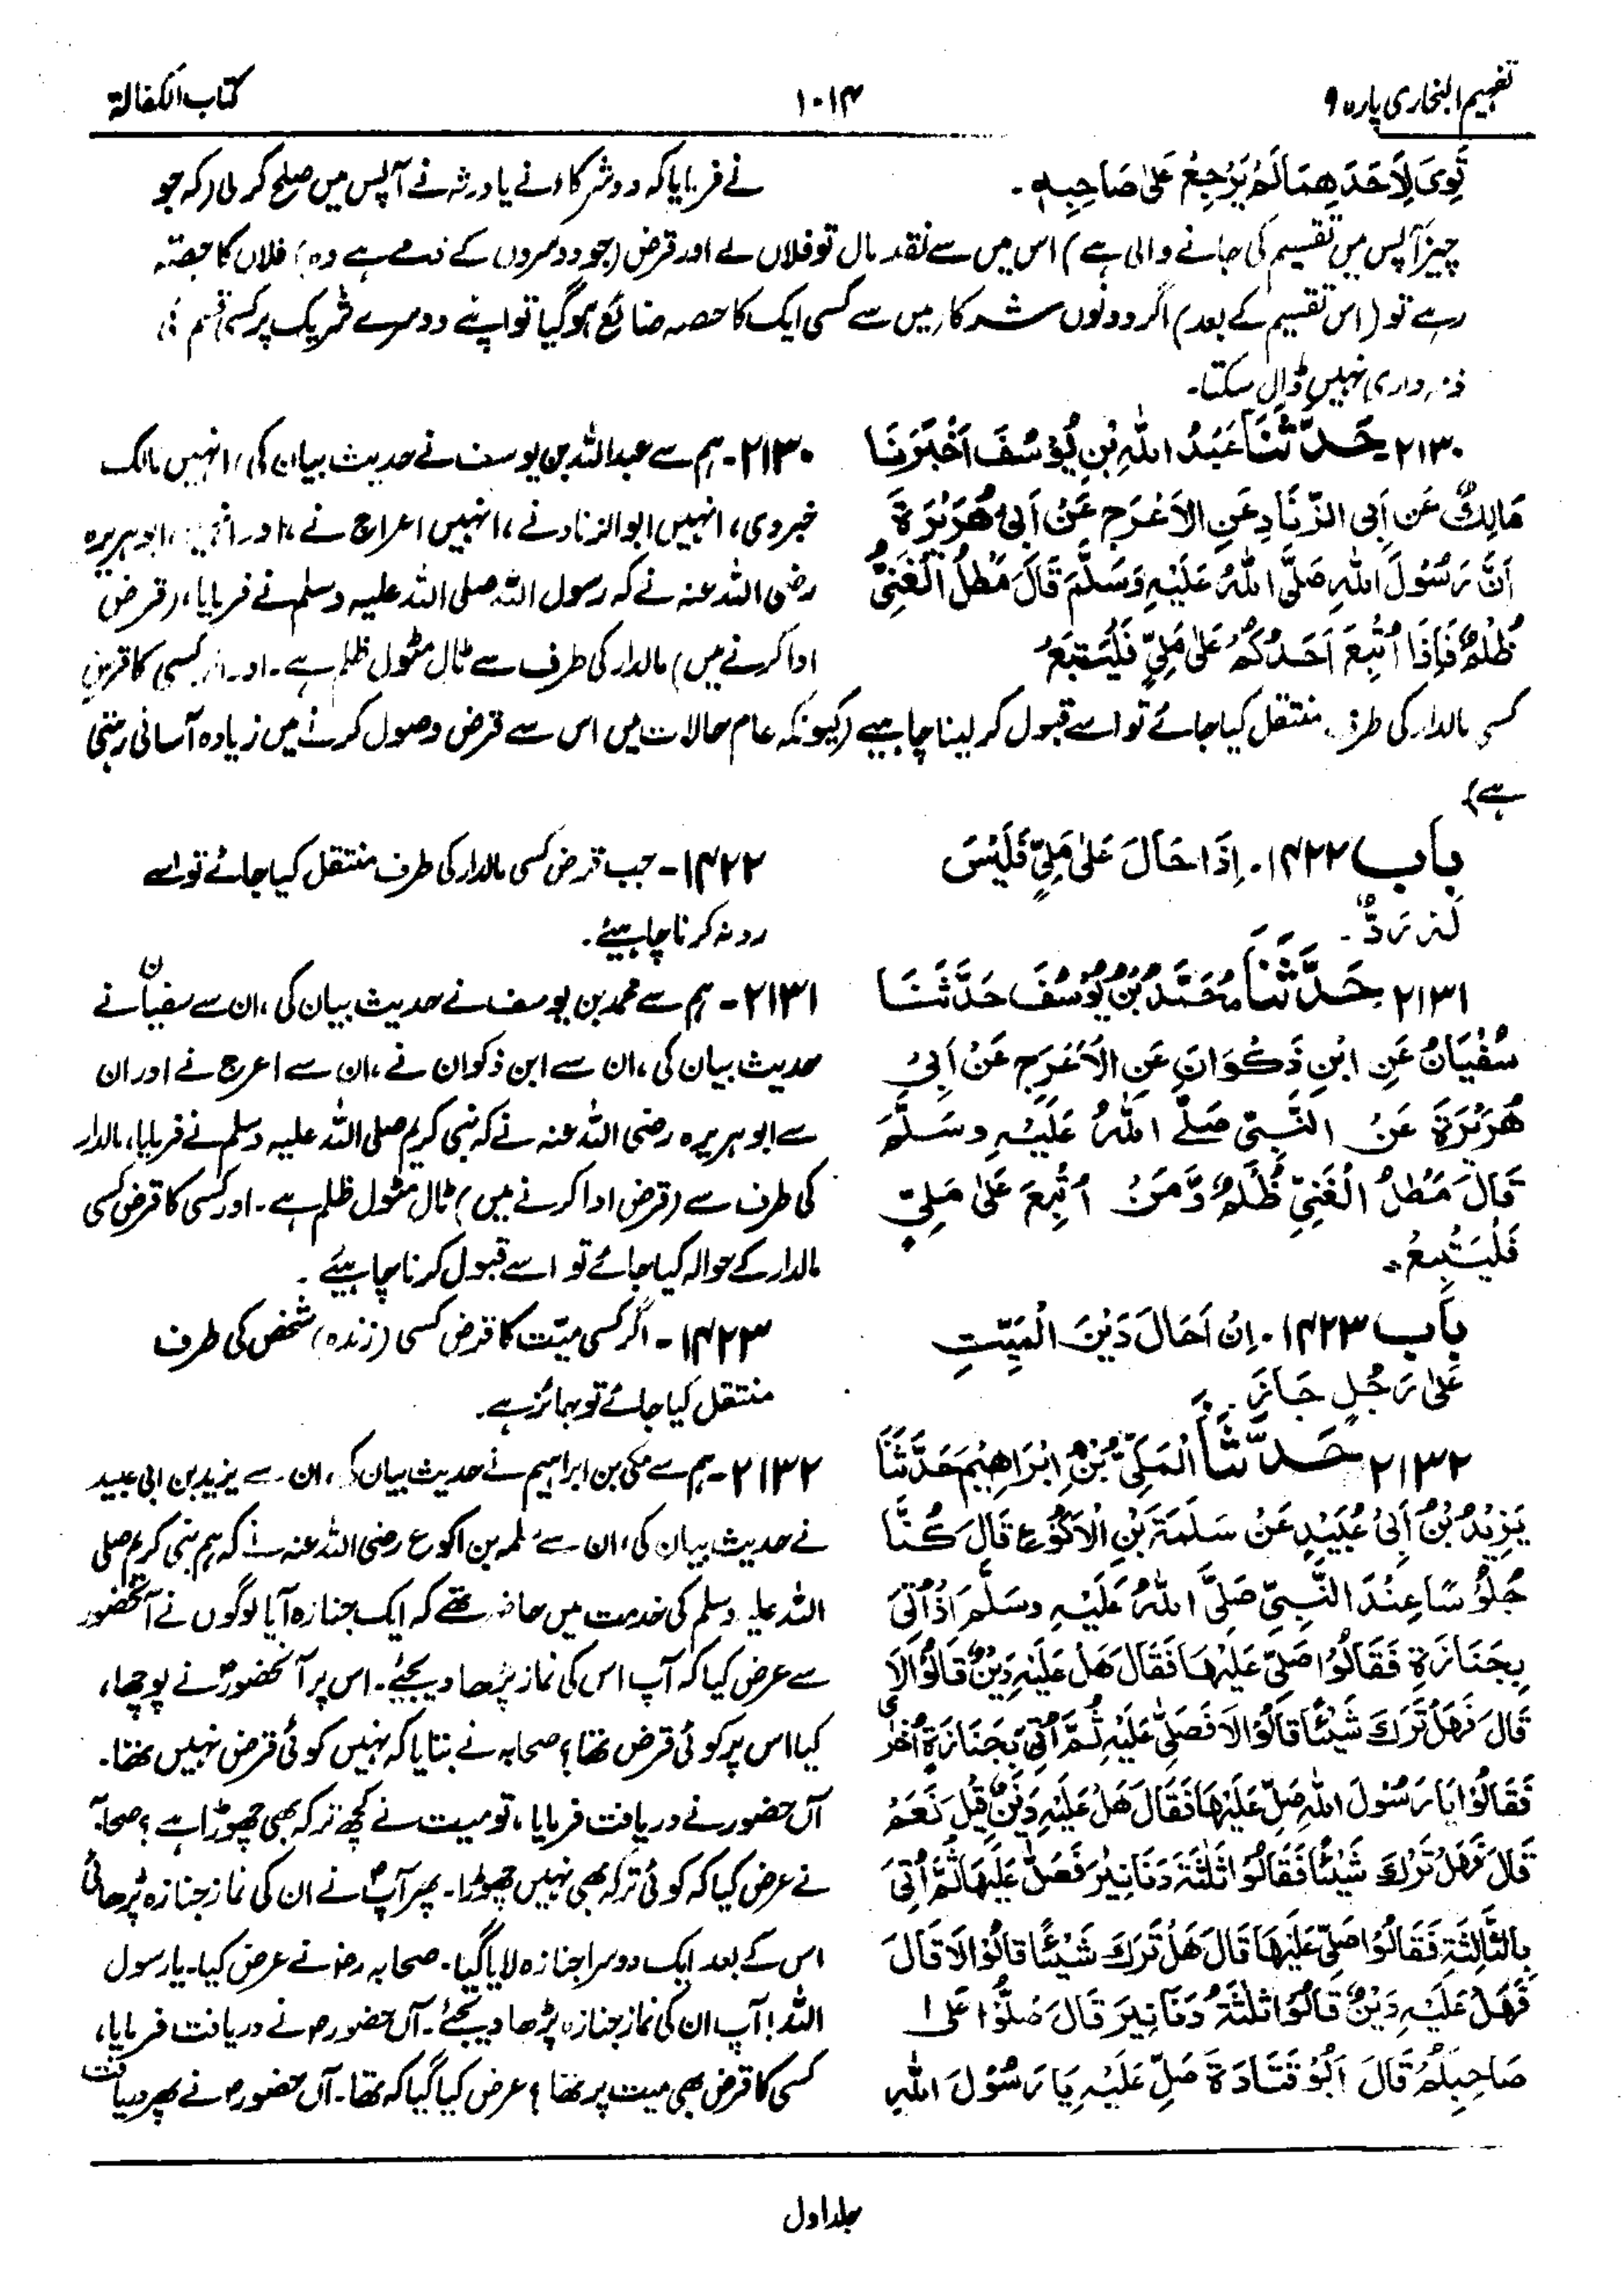 تفہیم البخاری پارہ ۹
۱۰۱۴
کتاب الکفالة
تَوِیَ لِاَحَدِهِمَا لَمْ یَرْجِعْ عَلٰی صَاحِبِهٖ ۔
نے فرمایا کہ دو شرکاء نے یا ورثہ نے آپس میں صلح کر لی (کہ جو
چیز آپس میں تقسیم کی جانے والی ہے) اس میں سے نقد مال تو فلاں لے اور قرض (جو دوسروں کے ذمے ہے وہ) فلاں کا حصتہ
رہے تو (اس تقسیم کے بعد) اگر دونوں شرکار میں سے کسی ایک کا حصہ ضائع ہو گیا تو اپنے دوسرے شریک پر کسی قسم کی
ذمہ داری نہیں ڈال سکتا۔
۲۱۳۰۔ حَدَّثَنَا عَبْدُ اللّٰهِ بْنِ یُوْسُفَ اَخْبَرَنَا
مَالِكٌ عَنْ اَبِی الزِّنَادِ عَنِ الْاَعْرَجِ عَنْ اَبِیْ هُرَیْرَةَ
اَنَّ رَسُوْلَ اللّٰهِ صَلَّی اللّٰهُ عَلَیْهِ وَسَلَّمَ قَالَ مَطْلُ الْغَنِیِّ
ظُلْمٌ فَاِذَا اُتْبِعَ اَحَدُكُمْ عَلٰی مَلِیٍّ فَلْیَتْبَعْ
۲۱۳۰۔ ہم سے عبداللہ بن یوسف نے حدیث بیان کی، انہیں مالک
خبر دی، انہیں ابوالزناد نے، انہیں اعراج نے، اور انہیں ابوہریرہ
رضی اللہ عنہ نے کہ رسول اللہ صلی اللہ علیہ وسلم نے فرمایا، (قرض
ادا کرنے میں) مالدار کی طرف سے ٹال مٹول ظلم ہے۔ اور اگر کسی کا قرض
کسی مالدار کی طرف منتقل کیا جائے تو اسے قبول کر لینا چاہیے (کیونکہ عام حالات میں اس سے قرض وصول کرنے میں زیادہ آسانی رہتی
ہے)
باب ۱۴۲۲۔ اِذَا حَالَ عَلٰی مَلِیٍّ فَلَیْسَ
لَهٗ رَدٌّ ۔
۱۴۲۲۔ جب قرض کسی مالدار کی طرف منتقل کیا جائے تو اسے
رد نہ کرنا چاہیئے۔
۲۱۳۱۔ حَدَّثَنَا مُحَمَّدُ بْنُ یُوْسُفَ حَدَّثَنَا
سُفْیَانُ عَنِ ابْنِ ذَكْوَانَ عَنِ الْاَعْرَجِ عَنْ اَبِیْ
هُرَیْرَةَ عَنِ النَّبِیِّ صَلَّی اللّٰهُ عَلَیْهِ وسَلَّمَ
قَالَ مَطْلُ الْغَنِیِّ ظُلْمٌ وَّمَنْ اُتْبِعَ عَلٰی مَلِیٍّ
فَلْیَتَّبِعْ ۔
۲۱۳۱۔ ہم سے محمد بن یوسف نے حدیث بیان کی، ان سے سفیان نے
حدیث بیان کی، ان سے ابن ذکوان نے، ان سے اعرج نے اور ان
سے ابوہریرہ رضی اللہ عنہ نے کہ نبی کریم صلی اللہ علیہ وسلم نے فرمایا، مالدار
کی طرف سے (قرض ادا کرنے میں) ٹال مٹول ظلم ہے۔ اور کسی کا قرض کسی
مالدار کے حوالہ کیا جائے تو اسے قبول کرنا چاہیئے ۔
باب ۱۴۲۳۔ اِنْ اَحَالَ دَیْنَ الْمَیِّتِ
عَلٰی رَجُلٍ جَازَ ۔
۱۴۲۳۔ اگر کسی میت کا قرض کسی (زندہ) شخص کی طرف
منتقل کیا جائے تو جائز ہے۔
۲۱۳۲ حَدَّثَنَا الْمَكِّیُّ بْنُ اِبْرَاهِیْمَ حَدَّثَنَا
یَزِیْدُ بْنُ اَبِیْ عُبَیْدٍ عَنْ سَلَمَةَ بْنِ الْاَكْوَعِ قَالَ كُنَّا
جُلُوْسًا عِنْدَ النَّبِیِّ صَلَّی اللّٰهُ عَلَیْهِ وسَلَّمَ اِذْ اُتِیَ
بِجَنَازَةٍ فَقَالُوْا صَلِّ عَلَیْهَا فَقَالَ هَلْ عَلَیْهِ دَیْنٌ قَالُوْا لَا
قَالَ فَهَلْ تَرَكَ شَیْئًا قَالُوْا لَا فَصَلّٰی عَلَیْهِ ثُمَّ اُتِیَ بِجَنَازَةٍ اُخْرٰی
فَقَالُوْا یَا رَسُوْلَ اللّٰهِ صَلِّ عَلَیْهَا فَقَالَ هَلْ عَلَیْهِ دَیْنٌ قِیْلَ نَعَمْ
قَالَ فَهَلْ تَرَكَ شَیْئًا فَقَالُوْا ثَلٰثَةَ دَنَانِیْرَ فَصَلّٰی عَلَیْهَا ثُمَّ اُتِیَ
بِالثَّالِثَةِ فَقَالُوْا صَلِّ عَلَیْهَا قَالَ هَلْ تَرَكَ شَیْئًا قَالُوْا لَا قَالَ
فَهَلْ عَلَیْهِ دَیْنٌ قَالُوْا ثَلٰثَةُ دَنَانِیْرَ قَالَ صَلُّوْا عَلٰی
صَاحِبِكُمْ قَالَ اَبُوْ قَتَادَةَ صَلِّ عَلَیْهِ یَا رَسُوْلَ اللّٰهِ
۲۱۳۲۔ ہم سے مکی بن ابراہیم نے حدیث بیان کی، ان سے یزید بن ابی عبید
نے حدیث بیان کی، ان سے سلمہ بن اکوع رضی اللہ عنہ نے کہ ہم نبی کریم صلی
اللہ علیہ وسلم کی خدمت میں حاضر تھے کہ ایک جنازہ آیا لوگوں نے آنحضور
سے عرض کیا کہ آپ اس کی نماز پڑھا دیجئے۔ اس پر آنحضورؐ نے پوچھا،
کیا اس پر کوئی قرض تھا؟ صحابہ نے بتایا کہ نہیں کوئی قرض نہیں تھا۔
آں حضور نے دریافت فرمایا، تو میت نے کچھ ترکہ بھی چھوڑا ہے؟ صحابہ
نے عرض کیا کہ کوئی ترکہ بھی نہیں چھوڑا۔ پھر آپؐ نے ان کی نماز جنازہ پڑھائی
اس کے بعد ایک دوسرا جنازہ لایا گیا۔ صحابہ رضؓ نے عرض کیا۔ یا رسول
اللہ! آپ ان کی نماز جنازہ پڑھا دیجئے۔ آں حضورؐ نے دریافت فرمایا،
کسی کا قرض بھی میت پر تھا؟ عرض کیا گیا کہ تھا۔ آں حضورؐ نے پھر دریافت
جلد اول